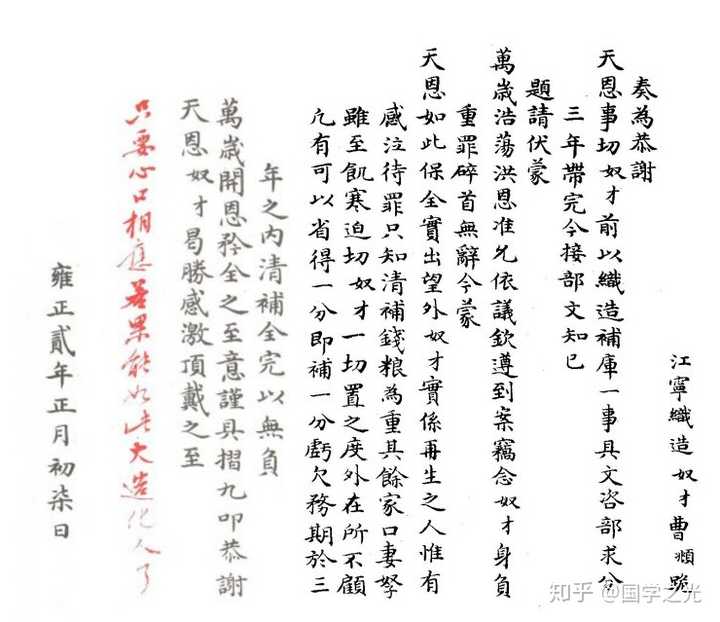 江寧織造奴才曹頫跪
奏為恭謝
天恩事切奴才前以織造補庫一事具文咨部求分
三年帶完今接部文知已
題請伏蒙
萬歲浩蕩洪恩准允依議欽遵到案竊念奴才身負
重罪碎首無辭今蒙
天恩如此保全實出望外奴才實係再生之人惟有
感泣待罪只知清補錢粮為重其餘家口妻孥
雖至飢寒迫切奴才一切置之度外在所不顧
凢有可以省得一分即補一分虧欠務期於三
年之內清補全完以無負
萬歲開恩矜全之至意謹具摺九叩恭謝
天恩奴才曷勝感激頂戴之至
只要心口相應若果能如此大造化人了
雍正貳年正月初柒日
知乎 @国学之光